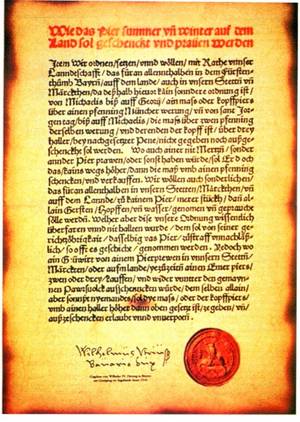 Wie das Pier summer vñ winter auf dem
Land sol geschenckt vnd prauen werden
Item Wir ordnen/setzen/vnnd wöllen/mit Rathe vnnser
Lanndtschafft/das für an allennthalben in dem Fürsten-
thūmb Bayrn/auff dem lannde/auch in vnsern Stettn vñ
Märckthen/da deßhalb hieuor kain sonndere ordnung ist/
von Michaelis biß auff Georij/ain mass oder kopffpiers
über ainen pfenning Müncher werung/vñ von sant Jor-
gen tag/biß auff Michaelis/die mass über zwen pfenning
derselben werung/vnd derenden der kopff ist/über drey
haller/bey nachgesetzter Pene/nicht gegeben noch außge-
schenckht sol werden. Wo auch ainer nit Mertzn/sonder
annder Pier prawen/oder sonst haben würde/sol Er doch
das/kains wegs höher/dann die mass vmb ainen pfenning
schencken/vnd verkauffen. Wir wöllen auch sonnderlichen
das für an allenthalben in vnsern Stetten/Märckthen/vñ
auf dem Lannde/zu kainem Pier/merer stuckh/dañ al-
lain Gersten/Hopffen/vñ wasser/genomen vñ gepraucht
sölle werdn. Welher aber dise vnsere Ordnung wissentlich
überfaren vnnd nit hallten wurde/dem sol von seiner ge-
richtzöbrigkait/dasselbig vas Pier/züstraff vnnachläß-
lich/so offt es geschicht/genommen werden. Yedoch wo
ain Güwirt von ainem Pierprewen in vnnsern Stettn/
Märckten/oder aufm lande/yezüzeitn ainen Emer piers/
zwen oder drey/kauffen/vnd wider vnntter den gemayn-
nen Pawrsuolck ausschencken würde/dem selben allain/
aber sonnst nyemandes/sol dye mass/oder der kopffpiers/
vmb ainen haller höher dann oben gesetzt ist/ze geben/vñ/
außzeschencken erlaubt vnnd vnuerpotn.